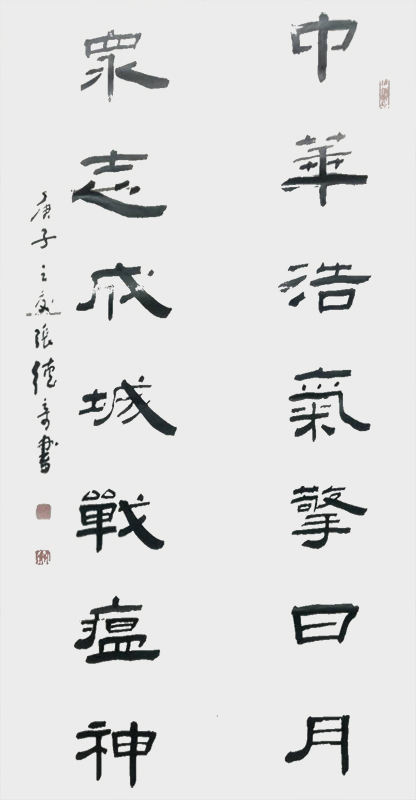 中華浩氣擎日月
眾志成城戰瘟神
庚子之夏張德奇書